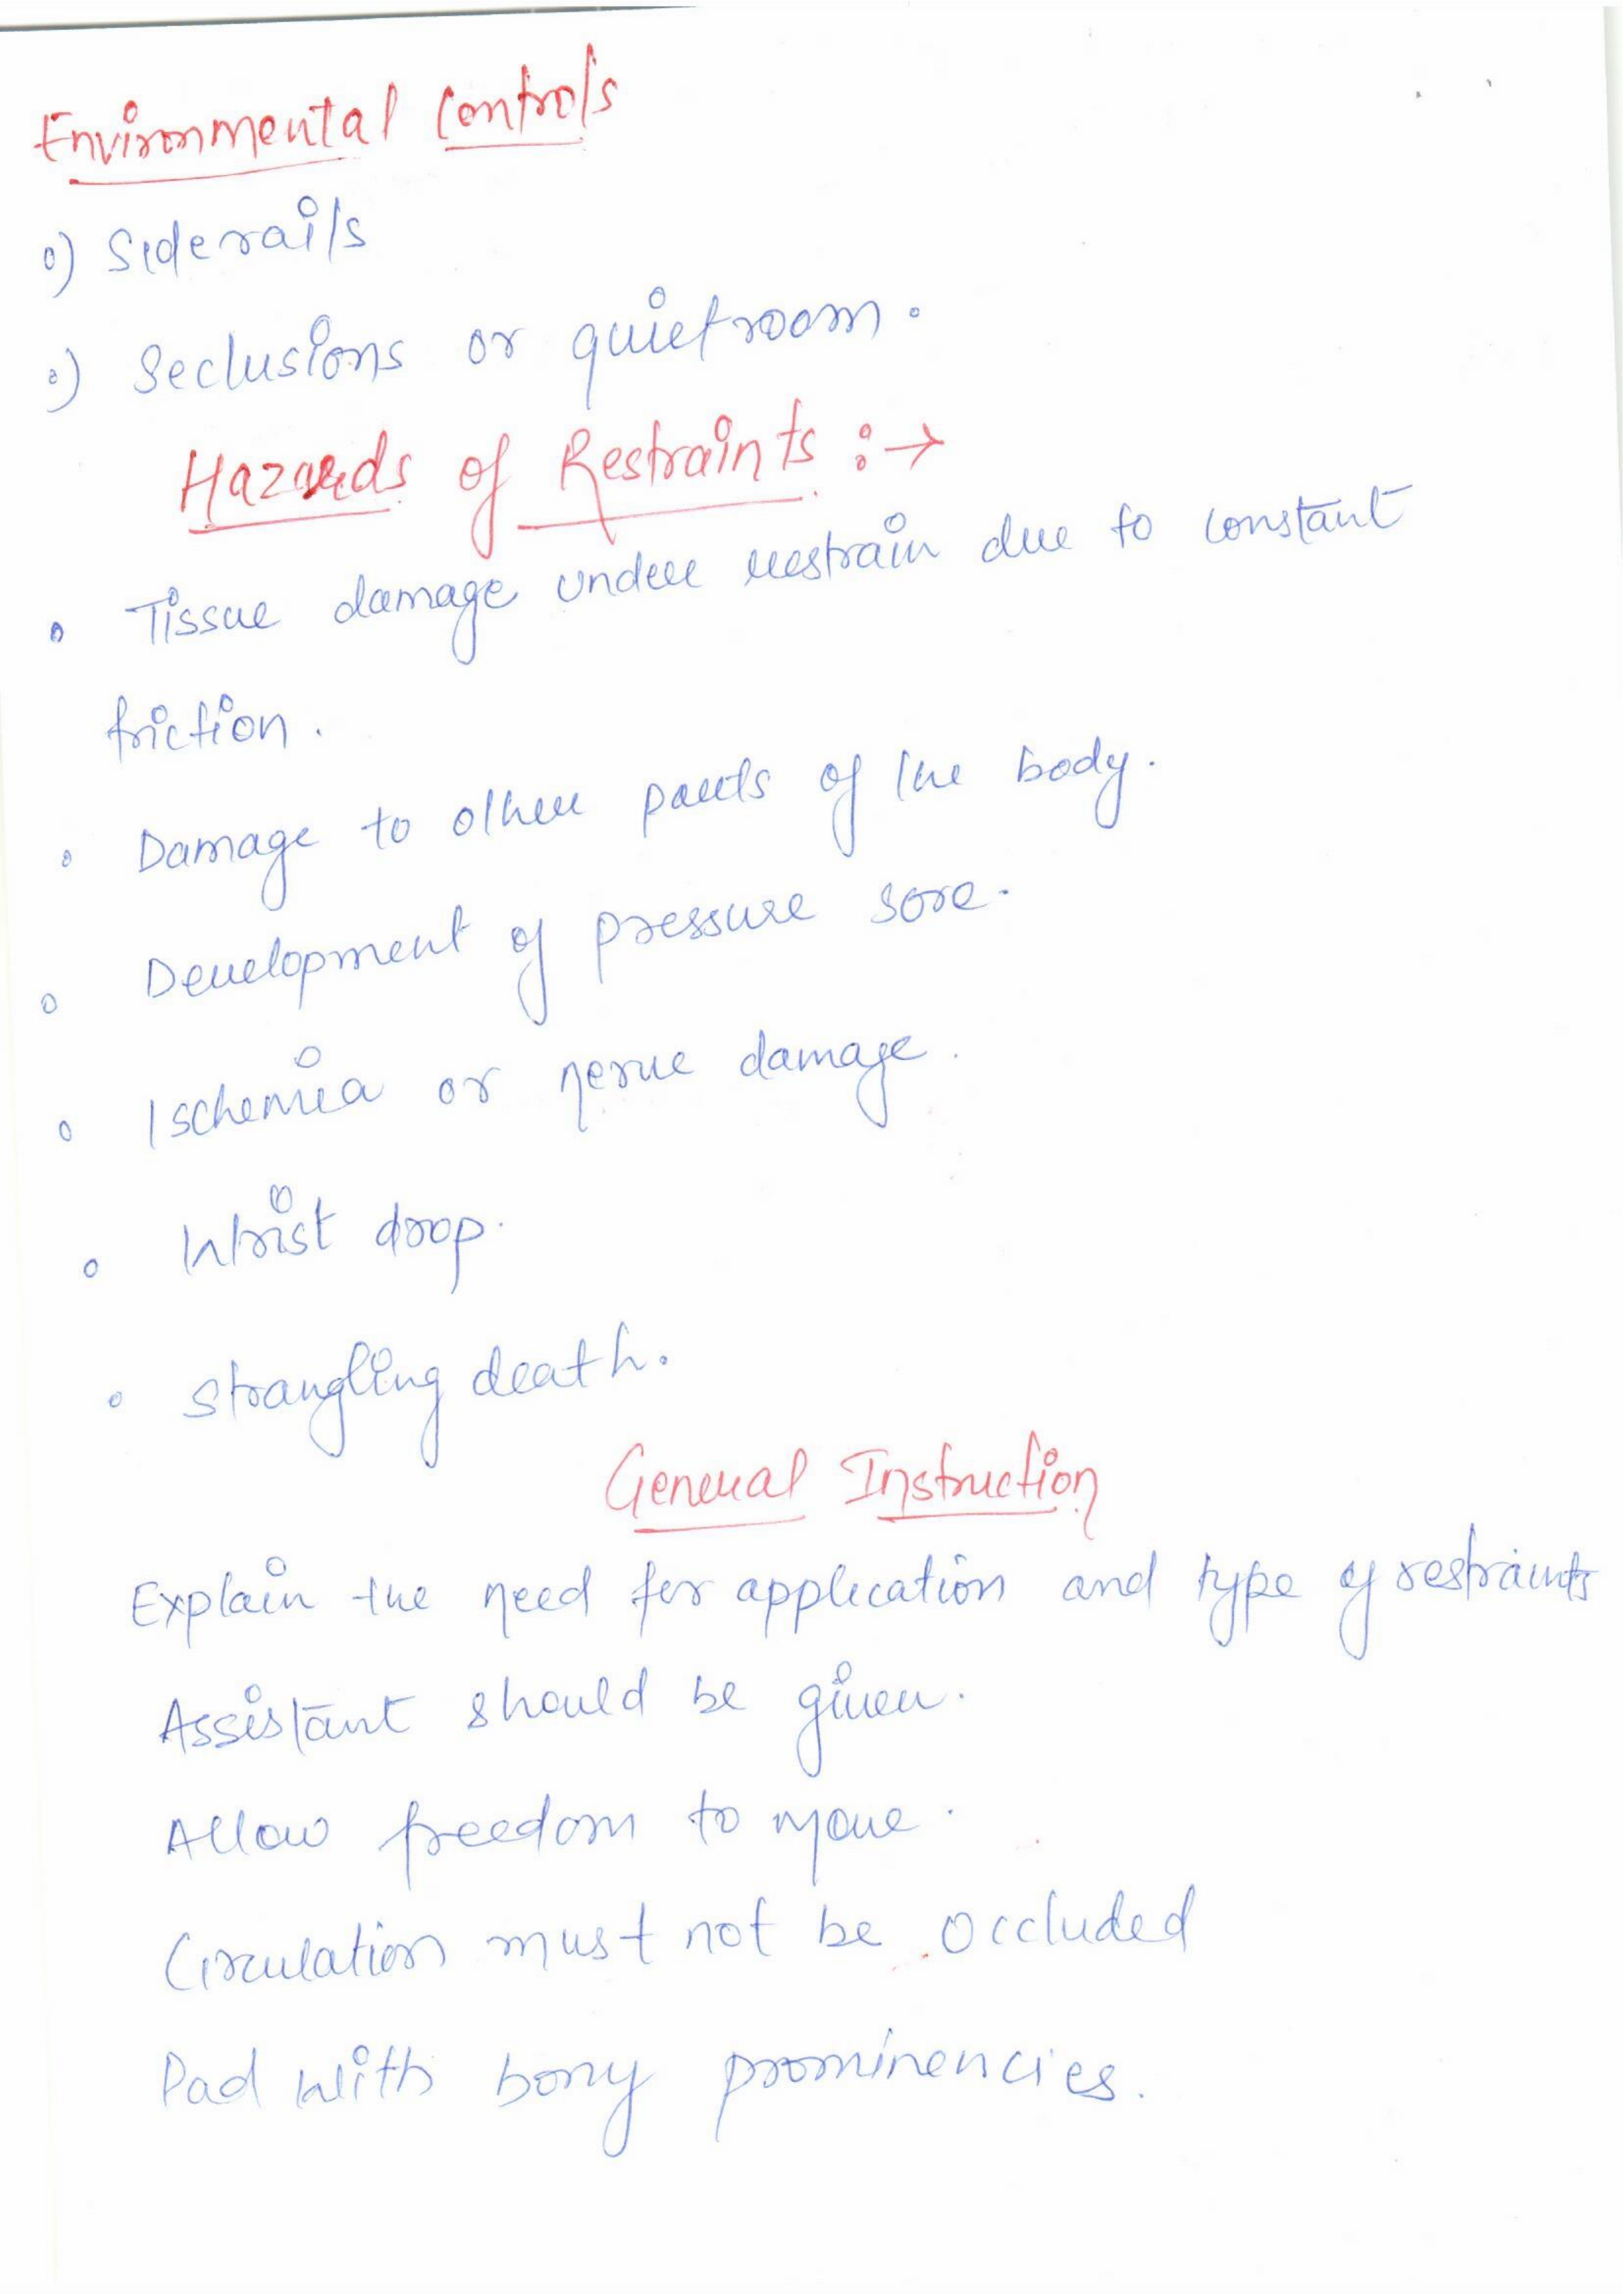 Environmental Controls
०) Siderails
०) Seclusions or quiet room.
Hazards of Restraints :→
• Tissue damage under restrain due to constant
friction.
• Damage to other parts of the body.
• Development of pressure sore.
• Ischemia or nerve damage.
• Wrist drop.
• Strangling death.
General Instruction
Explain the need for application and type of restraints
Assistant should be given.
Allow freedom to move.
Circulation must not be occluded
Pad with bony prominencies.